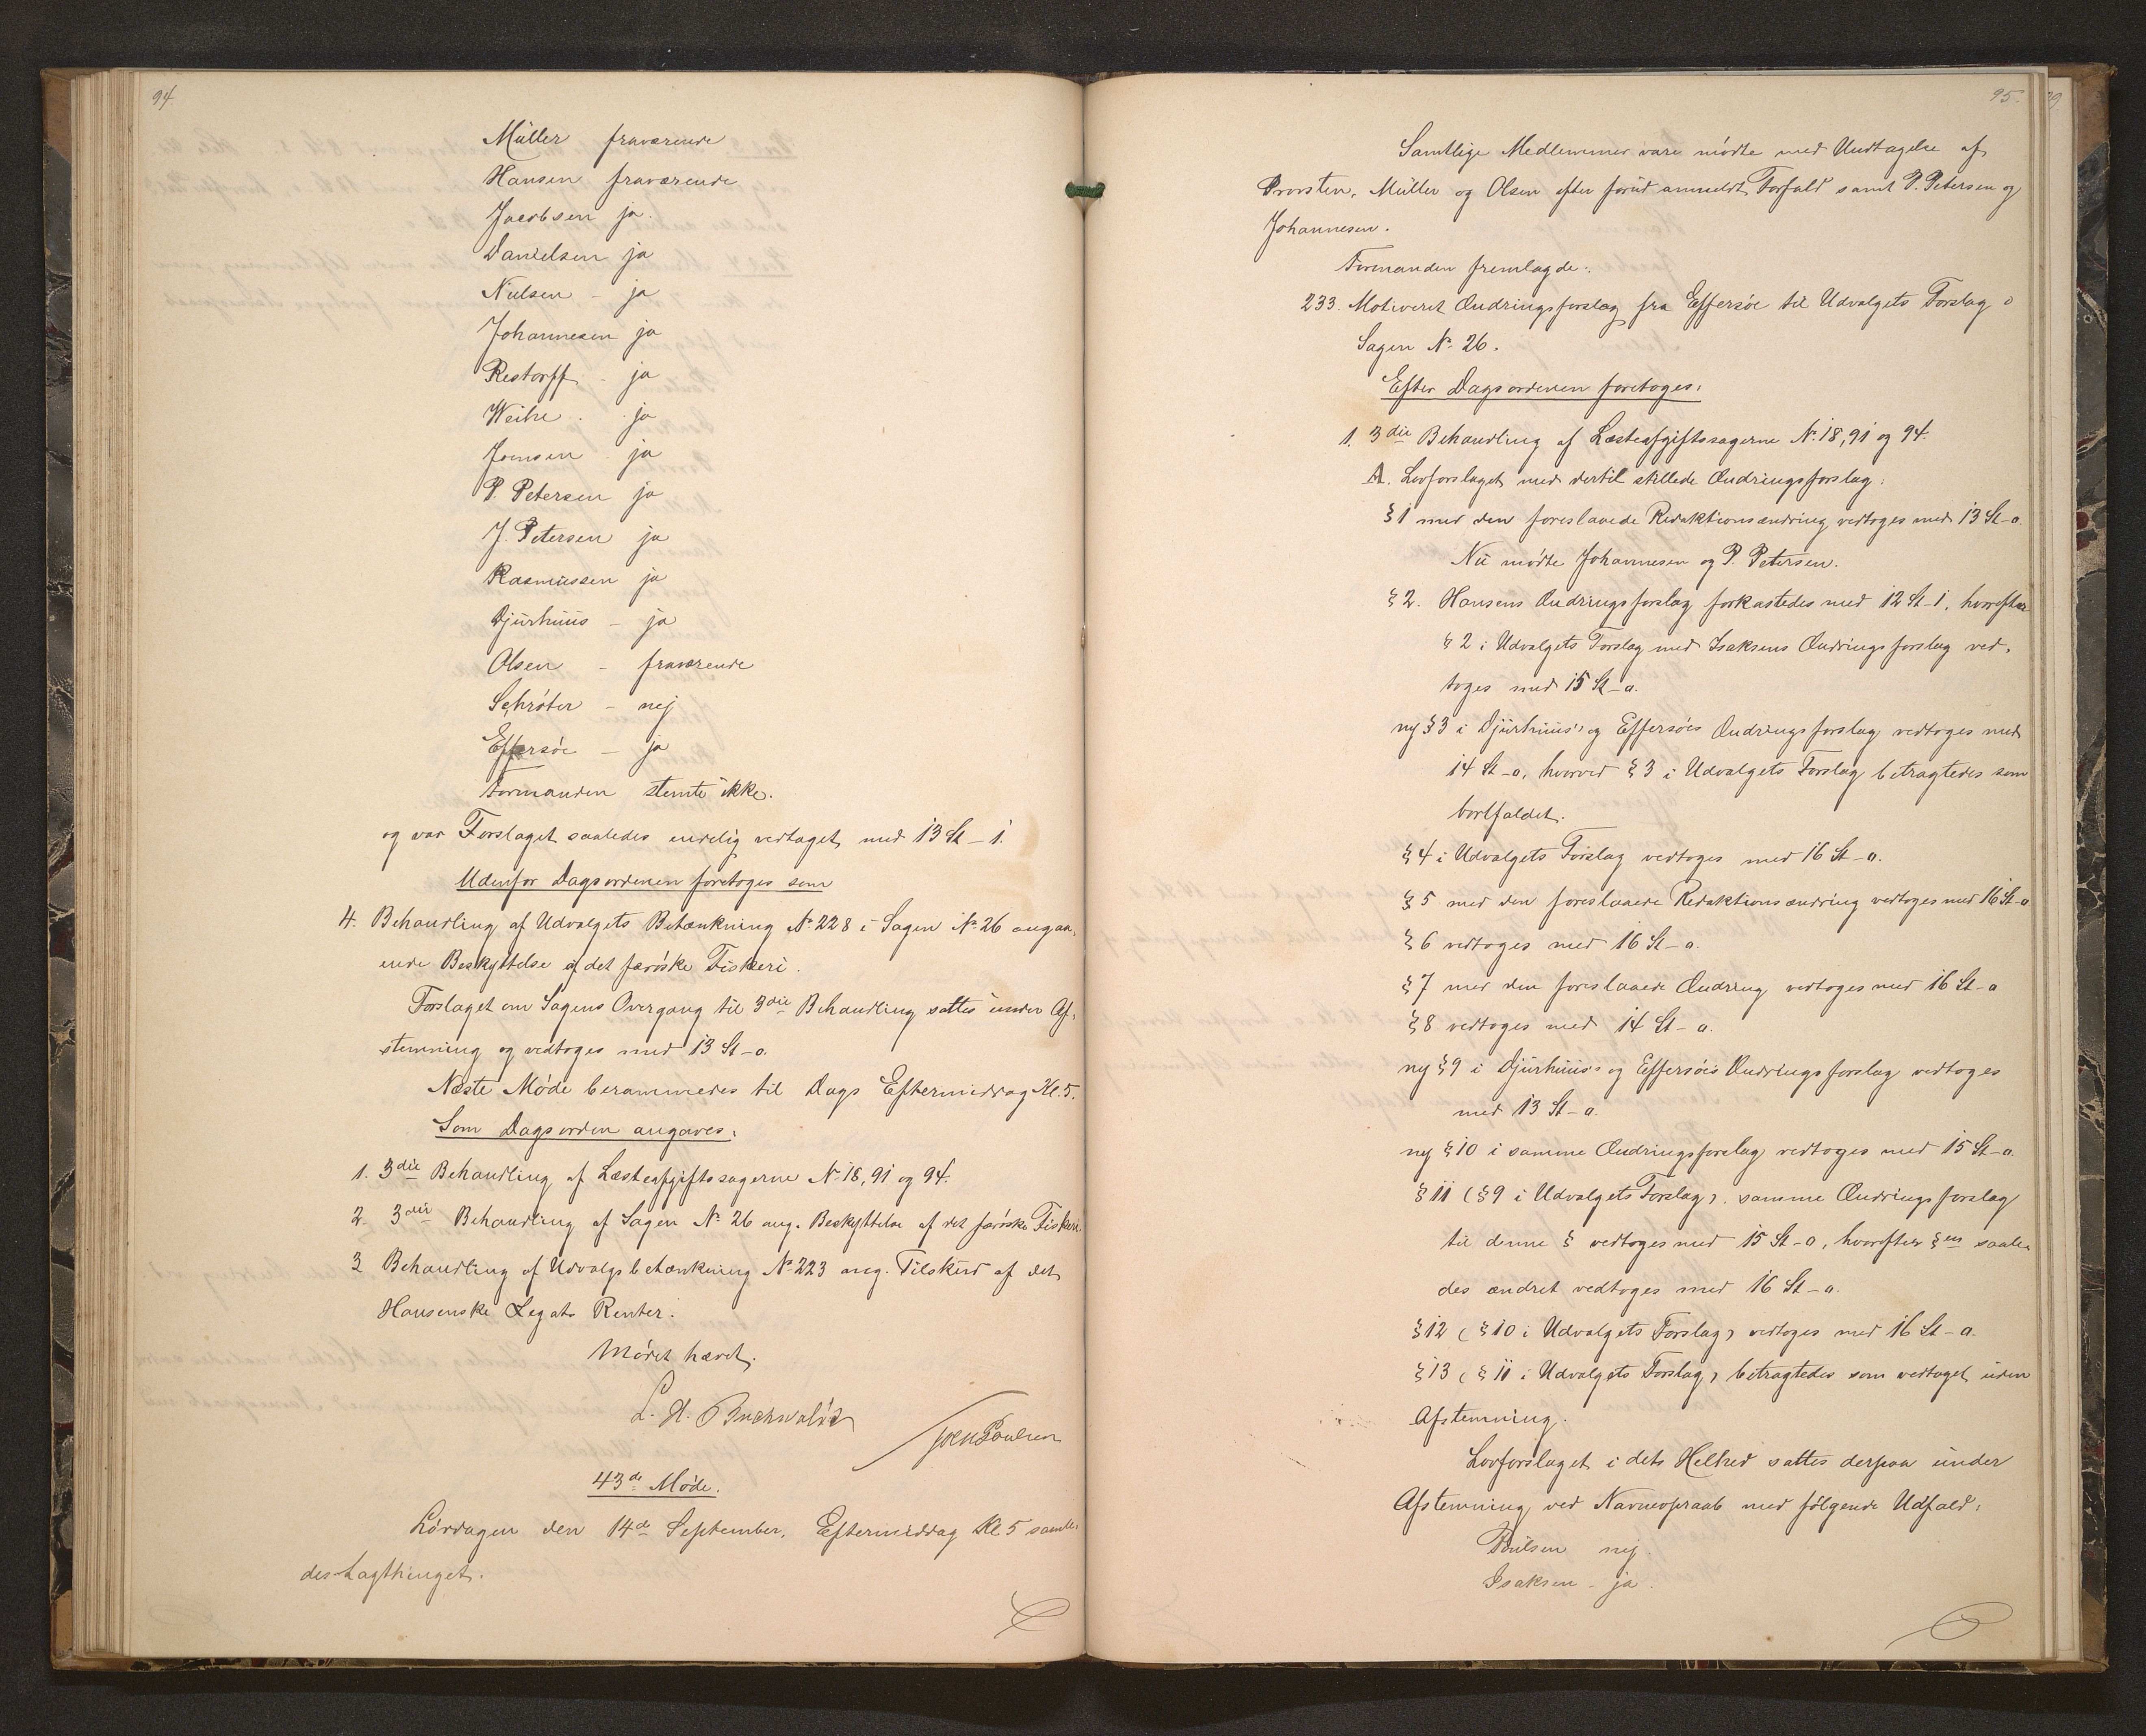 94.
Müller fraværende
Hansen fraværende
Jacobsen ja.
Danielsen ja
Nielsen - ja
Johannesen ja
Restorff - ja
Weihe - ja
Joensen - ja
P. Petersen ja
J. Petersen ja
Rasmussen ja
Djurhuus - ja
Olsen - fraværende
Schrøter - nej
Effersøe - ja
Formanden stemte ikke.
og var Forslaget saaledes endelig vedtaget med 13 St - 1.
Udenfor Dagsordenen foretoges som
4. Behandling af Udvalgets Betænkning No 228 i Sagen No 26 angaa-
ende Beskyttelse af det færøske Fiskeri.
Forslaget om Sagens Overgang til 3die Behandling sattes under Af-
stemning og vedtoges med 13 St - 0.
Næste Møde berammedes til Dags Eftermiddag Kl. 5.
Som Dagsorden angaves:
1. 3die Behandling af Læsteafgiftssagerne No 18, 91 og 94.
2. 3die Behandling af Sagen No 26 ang. Beskyttelse af det færøske Fiskeri
3 Behandling af Udvalgsbetænkning No 223 ang. Tilskud af det
Hansenske Legats Renter.
Mødet hævet.
L. H. Buchwaldt
Joen Poulsen
43de Møde.
Lørdagen den 14de September, Eftermiddag Kl 5 samle-
des Lagthinget.
95.
Samtlige Medlemmer vare mødte med Undtagelse af
Provsten, Müller og Olsen efter forud anmeldt Forfald samt P. Petersen og
Johannesen.
Formanden fremlagde:
233. Motiveret Ændringsforslag fra Effersøe til Udvalgets Forslag i
Sagen No 26.
Efter Dagsordenen foretoges:
1. 3die Behandling af Læsteafgiftssagerne No 18, 91 og 94.
A. Lovforslaget med dertil stillede Ændringsforslag:
§ 1 med den foreslaaede Redaktionsændring vedtoges med 13 St - 0.
Nu mødte Johannesen og P. Petersen.
§ 2. Hansens Ændringsforslag forkastedes med 12 St - 1, hvorefter
§ 2 i Udvalgets Forslag med Isaksens Ændringsforslag ved-
toges med 15 St - 0.
ny § 3 i Djurhuus's og Effersøes Ændringsforslag vedtoges med
14 St - 0, hvorved § 3 i Udvalgets Forslag betragtedes som
bortfaldet.
§ 4 i Udvalgets Forslag vedtoges med 16 St - 0.
§ 5 med den foreslaaede Redaktionsændring vedtoges med 16 St - 0
§ 6 vedtoges med 16 St - 0.
§ 7 med den foreslaaede Ændring vedtoges med 16 St - 0
§ 8 vedtoges med 14 St - 0.
ny § 9 i Djurhuus's og Effersøes Ændringsforslag vedtoges
med 13 St - 0.
ny § 10 i samme Ændringsforslag vedtoges med 15 St - 0.
§ 11 (§ 9 i Udvalgets Forslag). samme Ændringsforslag
til denne § vedtoges med 15 St - 0, hvorefter §en saale-
des ændret vedtoges med 16 St - 0.
§ 12 (§ 10 i Udvalgets Forslag) vedtoges med 16 St - 0.
§ 13 (§ 11 i Udvalgets Forslag) betragtedes som vedtaget uden
Afstemning.
Lovforslaget i dets Helhed sattes derpaa under
Afstemning ved Navneopraab med følgende Udfald:
Poulsen nej.
Isaksen - ja.